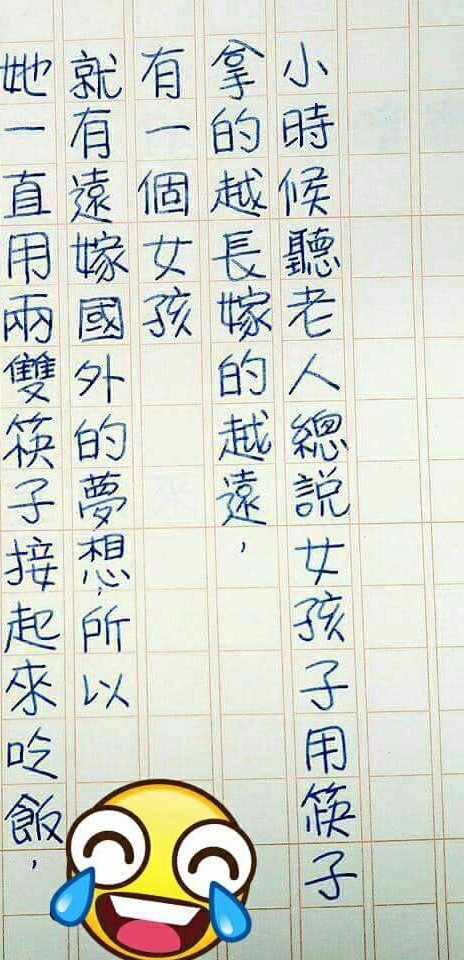 小時候聽老人總説女孩子用筷子
拿的越長嫁的越遠，
有一個女孩
就有遠嫁國外的夢想，所以
她一直用兩雙筷子接起來吃飯，